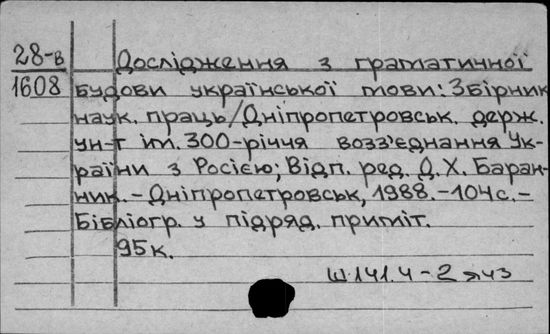 28-в Дослідження з граматичної
1608 будови української мови: Збірник
наук. праць/Дніпропетровськ. держ.
ун-т ім. 300-річчя возз'єднання Ук-
раїни з Росією; Відп. ред. Д.Х. Баран-
ник. - Дніпропетровськ, 1988. - 104с. -
Бібліогр. у підряд. приміт.
95к.
Ш141.4-2 я43